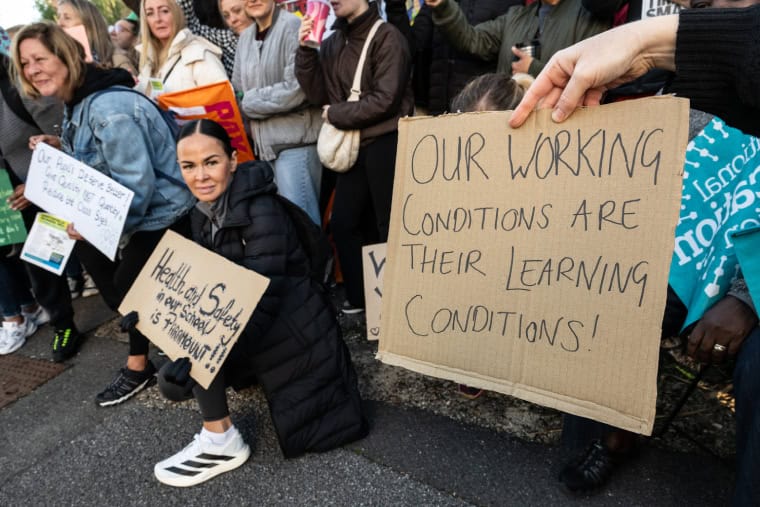 Our Pupils Deserve Better
Give Quality NOT Quantity
Reduce the Class Sizes
Health and Safety
in our School
is PARAMOUNT!!!
OUR WORKING
CONDITIONS ARE
THEIR LEARNING
CONDITIONS!
national